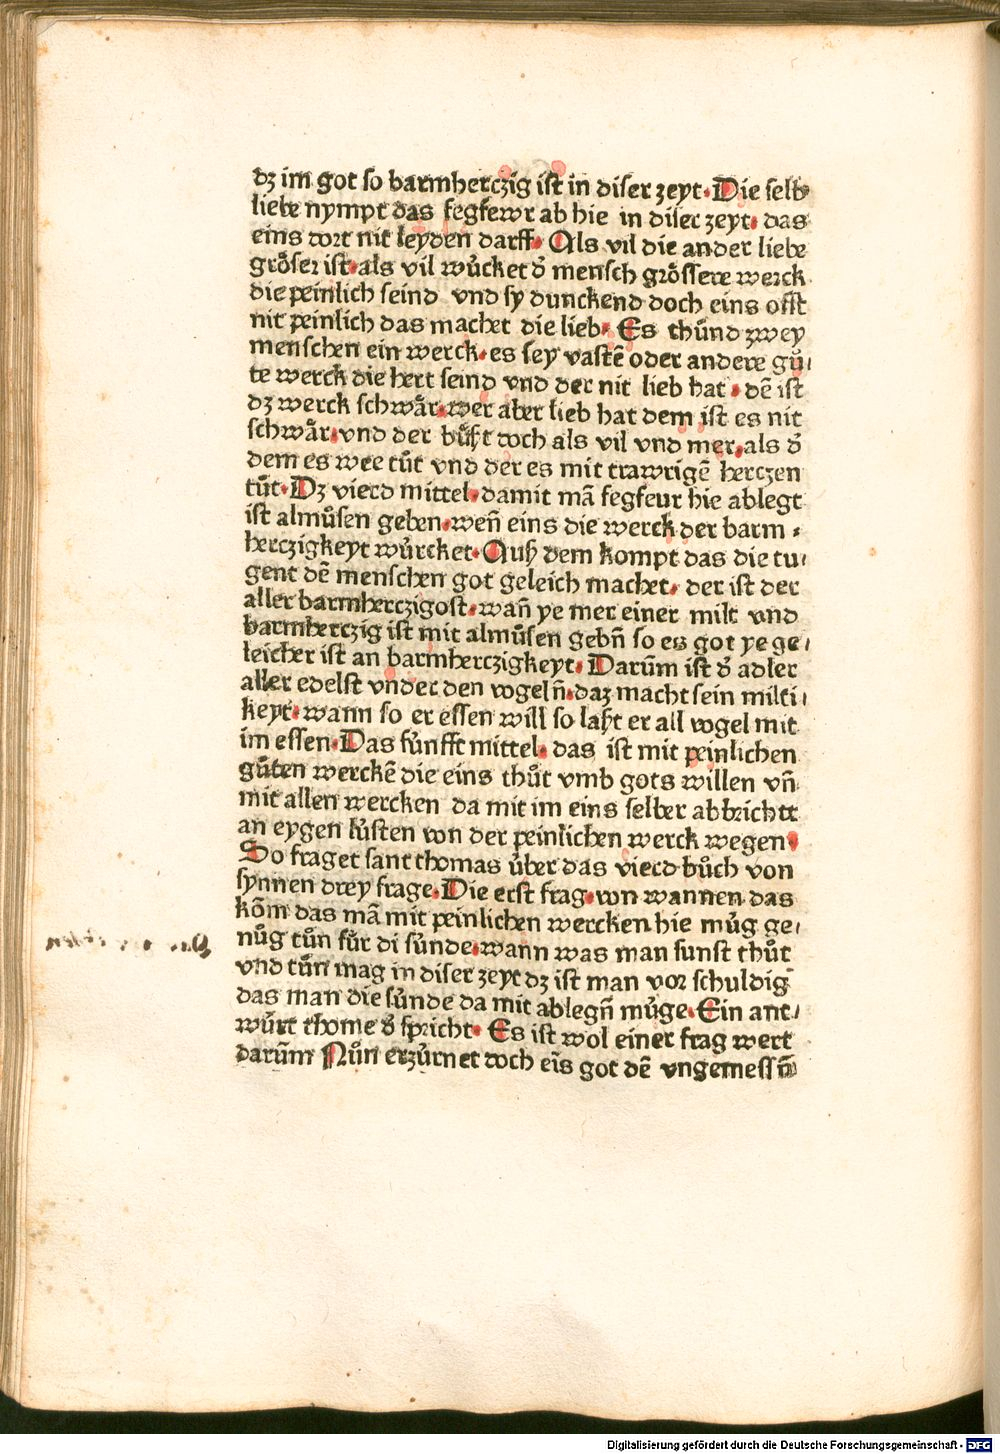 dz im got so barmherczig ist in diser zeyt. Die selb
liebe nympt das fegfewr ab hie in diser zeyt. das
eins dort nit leyden darff. Als vil die ander liebe
gro̊ser ist. als vil wu̇rcket d' mensch gro̊ssere werck
die peinlich seind vnd sy dunckend doch eins offt
nit peinlich das machet die lieb. Es thůnd zwey
menschen ein werck. es sey vastē oder andere gů⸗
te werck die hert seind vnd der nit lieb hat. dē ist
dz werck schwår. wer aber lieb hat dem ist es nit
schwår. vnd der bůßt doch als vil vnd mer. als d'
dem es wee tůt vnd der es mit trawrigē herczen
tůt. Dz vierd mittel. damit mā fegfeur hie ablegt
ist almůsen geben. weñ eins die werck der barm⸗
herczigkeyt wůrcket. Auß dem kompt das die tu⸗
gent dē menschen got geleich machet. der ist der
aller barmherczigost. wañ ye mer einer milt vnd
barmherczig ist mit almůsen gebñ so es got ye ge⸗
leicher ist an barmherczigkeyt. Darům ist d' adler
aller edelst vnder den vogelñ. daz macht sein milti⸗
keyt. wann so er essen will so laßt er all vogel mit
im essen. Das fůnfft mittel. das ist mit peinlichen
gůten werckē die eins thůt vmb gots willen vñ
mit allen wercken da mit im eins selber abbricht
an eygen lůsten von der peinlichen werck wegen.
So fraget sant thomas ůber das vierd bůch von
synnen drey frage. Die erst frag. von wannen das
kōm das mā mit peinlichen wercken hie můg ge⸗
nůg tůn fůr di sůnde. wann was man sunst thůt
vnd tůn mag in diser zeyt dz ist man vor schuldig
das man die sůnde da mit ablegñ můge. Ein ant⸗
wůrt thome d' spricht. Es ist wol einer frag wert
darům Nůn erzůrnet doch eīs got dē vngemessñ
Digitalisierung gefördert durch die Deutsche Forschungsgemeinschaft - DFG